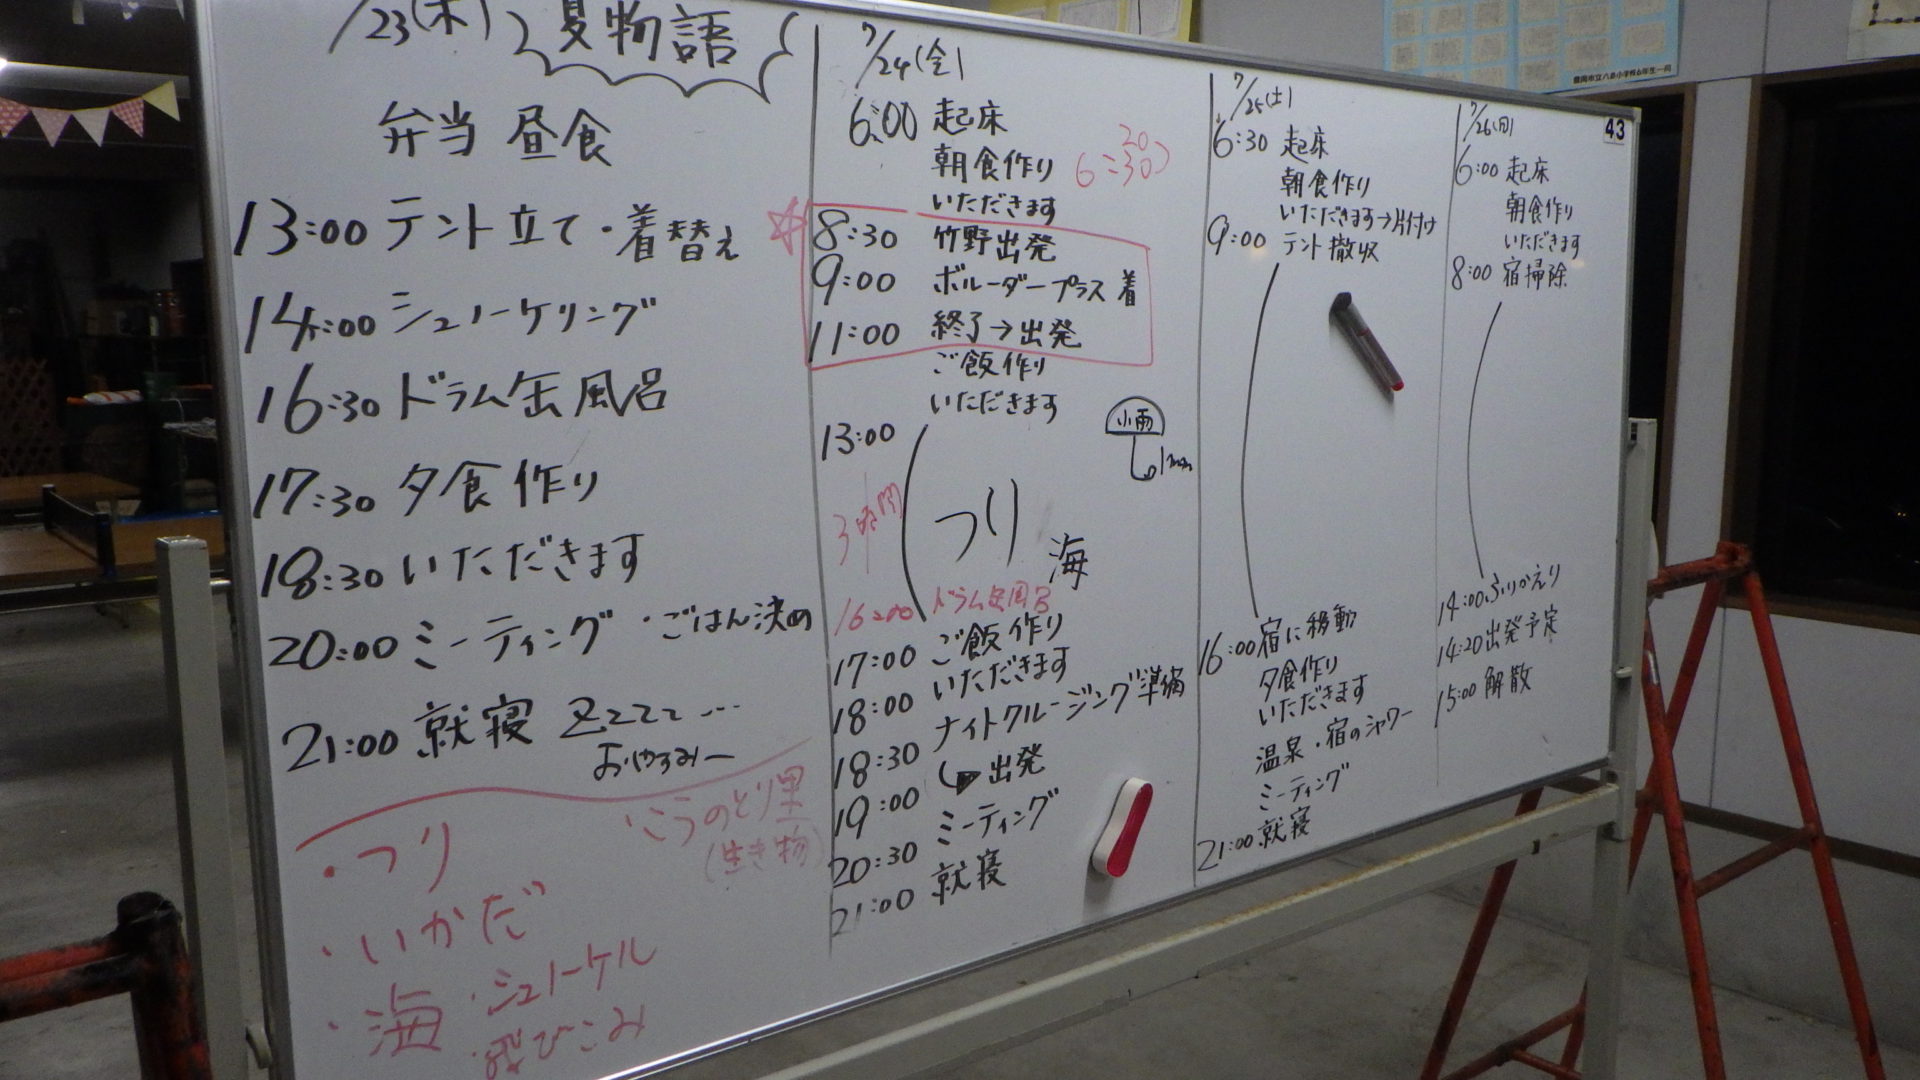 7/23(木) 夏物語
弁当 昼食
13:00 テント立て・着替え
14:00 シュノーケリング
16:30 ドラム缶風呂
17:30 夕食作り
18:30 いただきます
20:00 ミーティング ・ごはん決め
21:00 就寝 Zzzzz…
おやすみー
・つり
・こうのとり里
(生き物)
・いかだ
・海 ・シュノーケル
・飛びこみ
7/24(金)
6:00 起床
朝食作り 6:30 20
いただきます
8:30 竹野出発
9:00 ボルダープラス着
11:00 終了→出発
ご飯作り
いただきます
13:00
小雨
1mm
3時間
つり
海
16:00 ドラム缶風呂
17:00 ご飯作り
18:00 いただきます
18:30 ナイトクルージング準備
19:00 出発
20:30 ミーティング
21:00 就寝
7/25(土)
6:30 起床
朝食作り
いただきます→片付け
9:00 テント撤収
16:00 宿に移動
夕食作り
いただきます
温泉・宿のシャワー
ミーティング
21:00 就寝
7/26(日)
43
6:00 起床
朝食作り
いただきます
8:00 宿掃除
14:00 ふりかえり
14:20 出発予定
15:00 解散